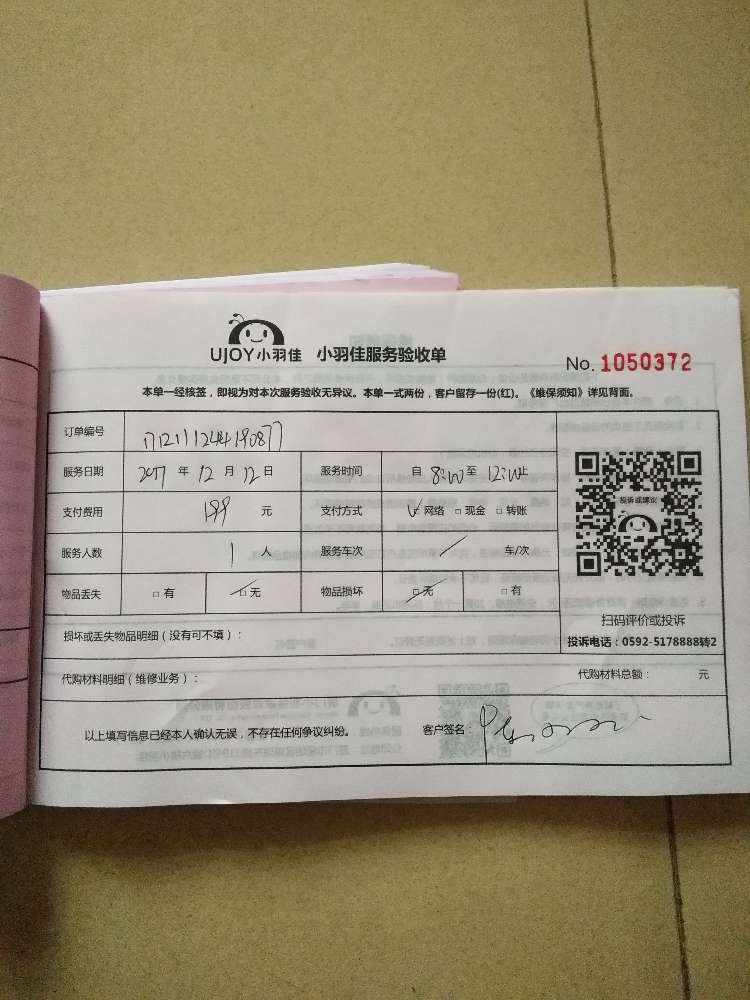 UJOY小羽佳 小羽佳服务验收单
No. 1050372
本单一经核签，即视为对本次服务验收无异议。本单一式两份，客户留存一份(红)。《维保须知》详见背面。
订单编号
服务日期 2017 年 12 月 12 日 服务时间 自 8:00 至 12:00 止
支付费用 199 元 支付方式 ☑ 网络 □ 现金 □ 转账
投诉或建议
服务人数 1 人 服务车次 / 车/次
物品丢失 □ 有 ☑ 无 物品损坏 ☑ 无 □ 有
扫码评价或投诉
损坏或丢失物品明细（没有可不填）：
投诉电话：0592-5178888转2
代购材料明细（维修业务）： 代购材料总额： 元
以上填写信息已经本人确认无误，不存在任何争议纠纷。 客户签名：